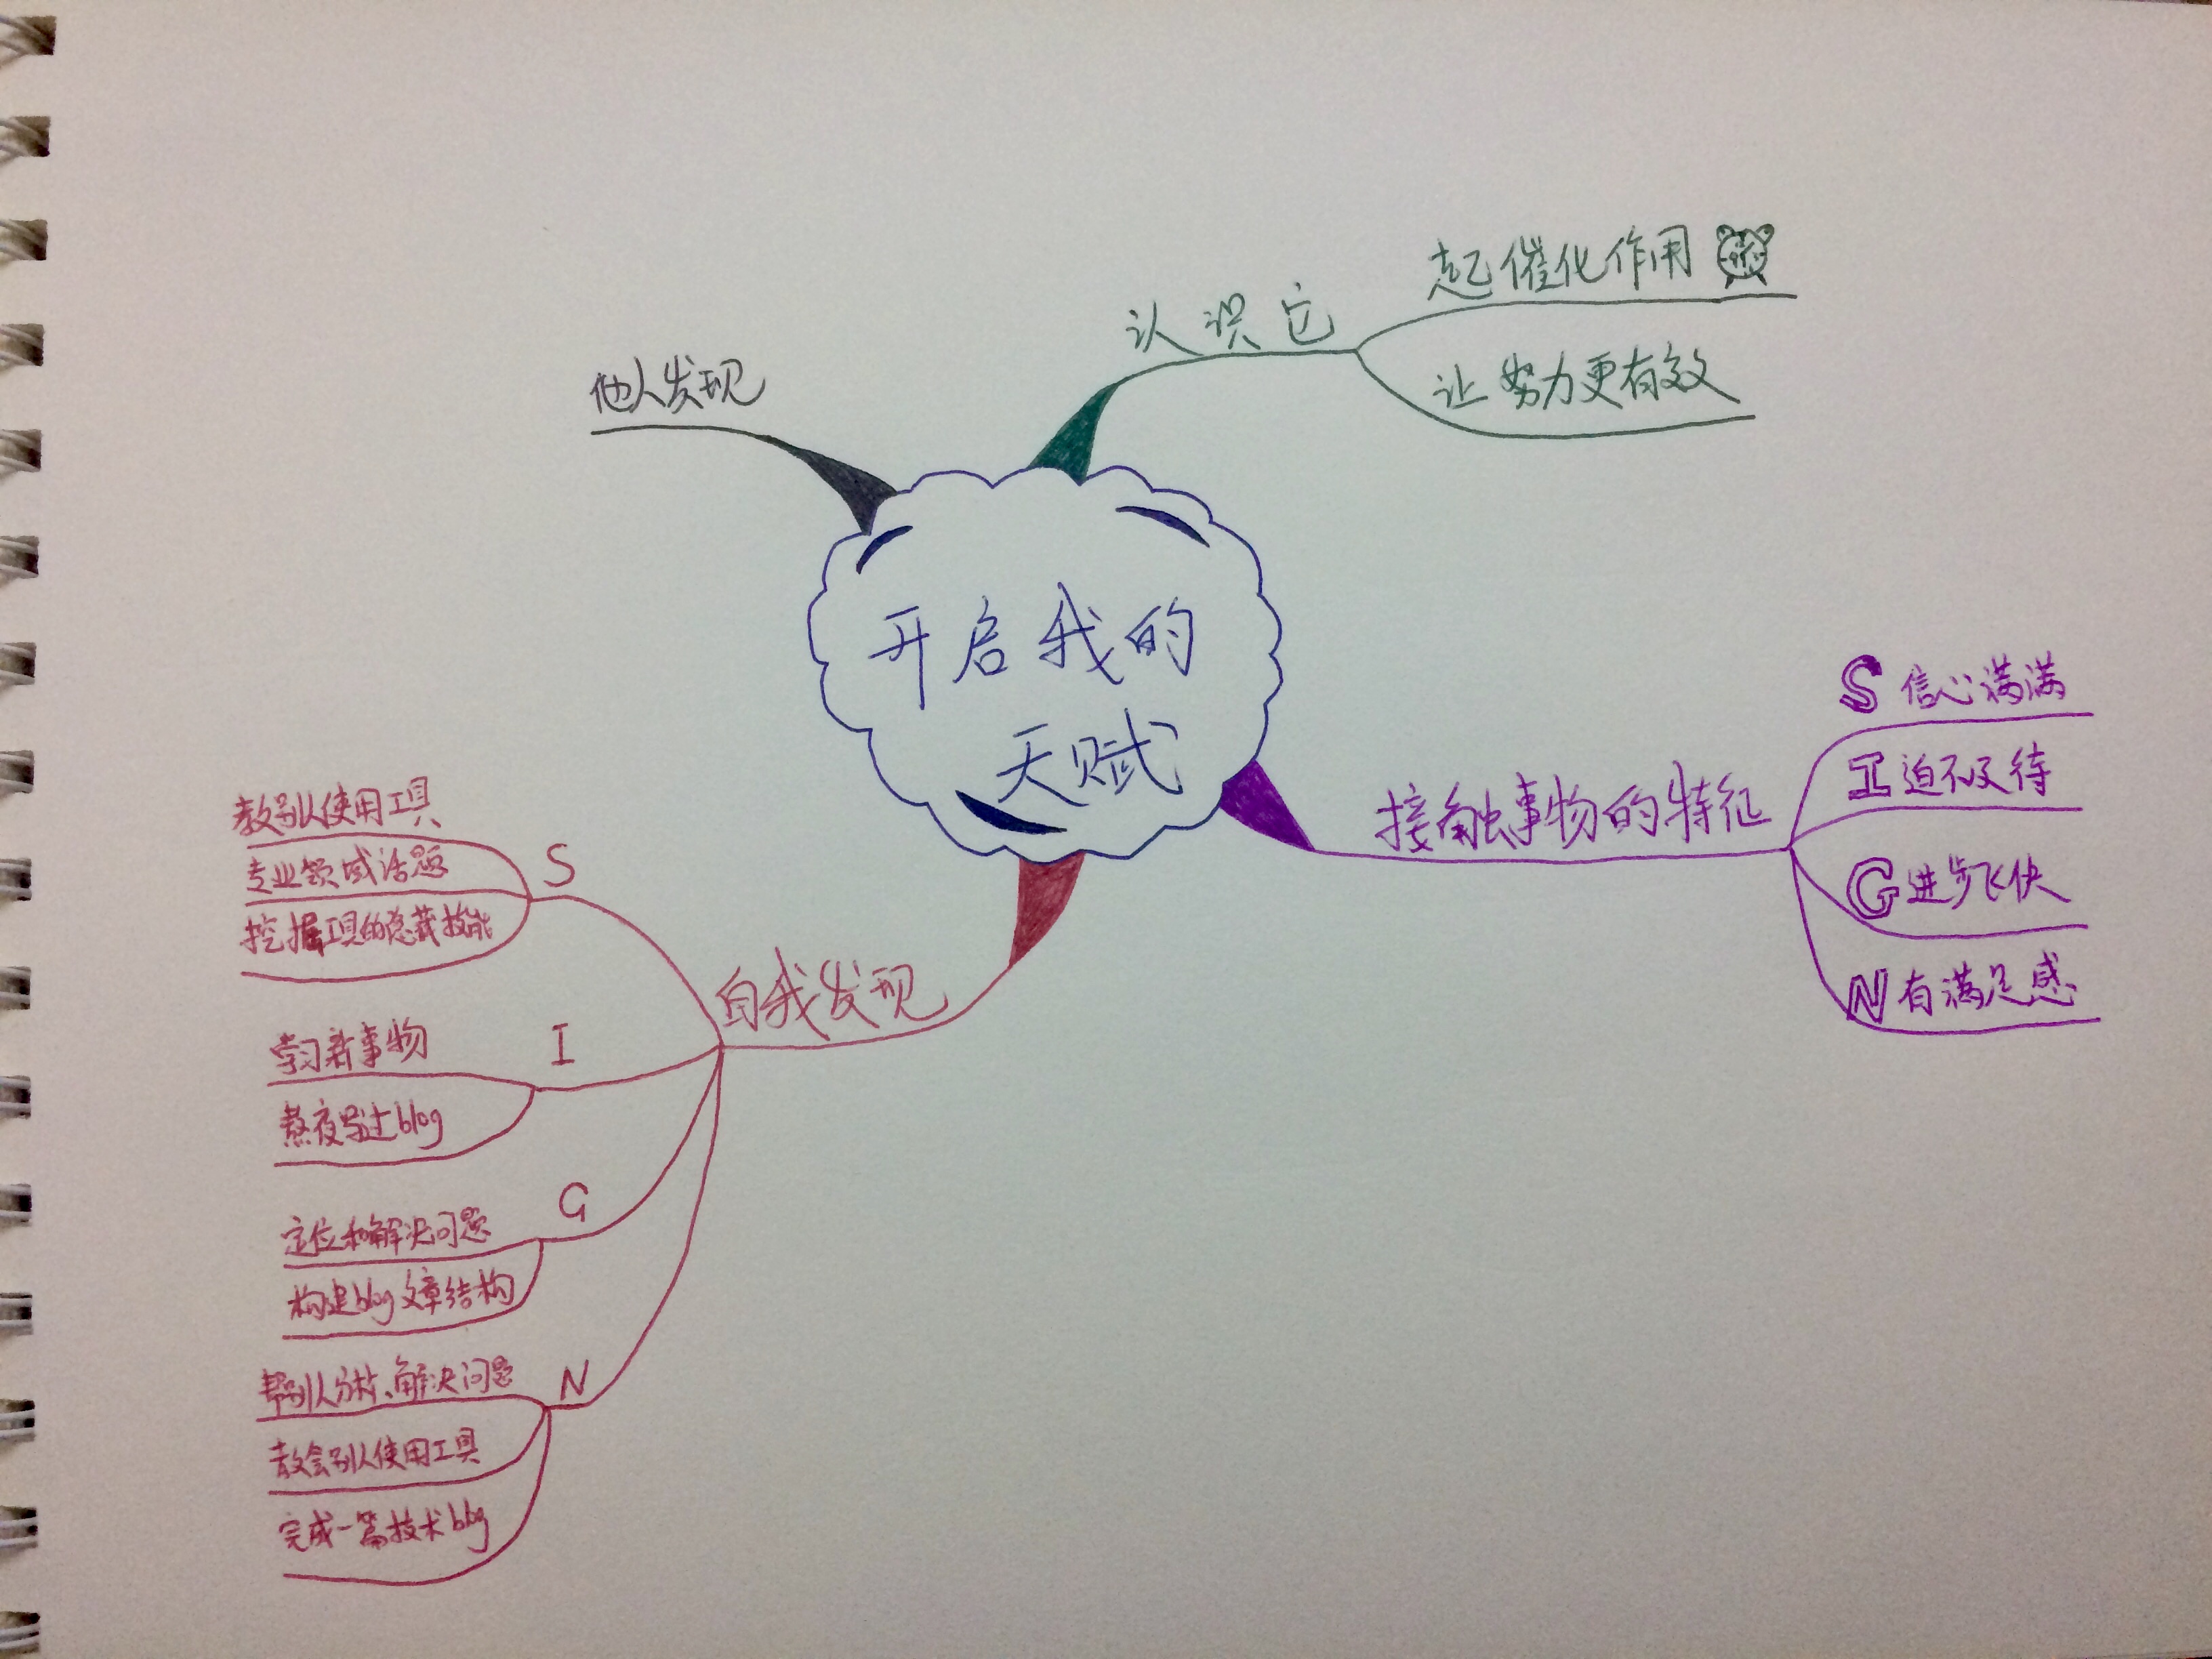 开启我的
天赋
认识它
起催化作用
让努力更有效
接触事物的特征
S 信心满满
I 迫不及待
G 进步飞快
N 有满足感
自我发现
S
教别人使用工具
专业领域话题
挖掘工具的隐藏技能
I
学习新事物
熬夜写blog
G
定位和解决问题
构建blog文章结构
N
帮别人分析、解决问题
教会别人使用工具
完成一篇技术blog
他人发现